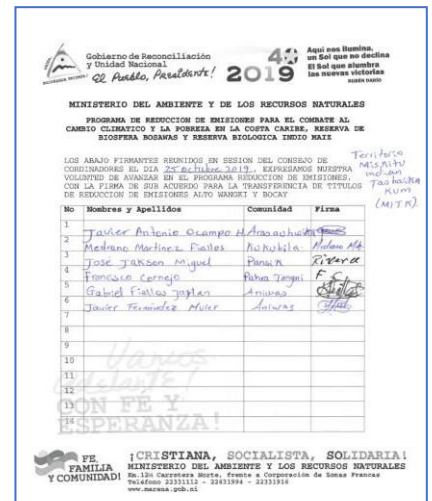 Gobierno de Reconciliación
y Unidad Nacional
El Pueblo, Presidente!
2019
Aquí nos ilumina,
un Sol que no declina
El Sol que alumbra
las nuevas victorias
RUBÉN DARÍO
MINISTERIO DEL AMBIENTE Y DE LOS RECURSOS NATURALES
PROGRAMA DE REDUCCION DE EMISIONES PARA EL COMBATE AL
CAMBIO CLIMATICO Y LA POBREZA EN LA COSTA CARIBE, RESERVA DE
BIOSFERA BOSAWAS Y RESERVA BIOLOGICA INDIO MAIZ
Territorio
Miskitu
Indian
Tasbaika
Kum
(MITK).
LOS ABAJO FIRMANTES REUNIDOS EN SESION DEL CONSEJO DE
CORDINADORES EL DIA 25 octubre 2019, EXPRESAMOS NUESTRA
VOLUNTED DE AVANZAR EN EL PROGRAMA REDUCCION DE EMISIONES.
CON LA FIRMA DE SUB ACUERDO PARA LA TRANSFERENCIA DE TITULOS
DE REDUCCION DE EMISIONES ALTO WANGKI Y BOCAY
No Nombres y Apellidos Comunidad Firma
1 Javier Antonio Ocampo H.
2 Medrano Martinez Fiallos Kukubila
3 Jose Jakson Miguel Pansik Rivera
4 Francisco Cornejo F C
5 Gabriel Fiallos Aniwas
6 Javier Fernandez Muler Aniwas
7
8
9
10
11
12
13
14
Vamos
adelante!
CON FE Y
ESPERANZA!
FE,
FAMILIA
Y COMUNIDAD!
¡CRISTIANA, SOCIALISTA, SOLIDARIA!
MINISTERIO DEL AMBIENTE Y LOS RECURSOS NATURALES
Km.12½ Carretera Norte, frente a Corporación de Zonas Francas
Teléfono 22331112 - 22631994 - 22331916
www.marena.gob.ni